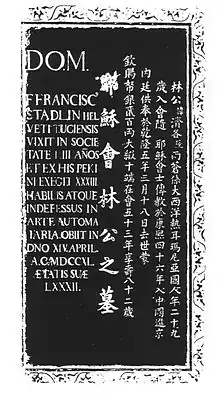 D.O.M.
F FRANCISC'
STADLIN HEL
VETI TUCIENSIS
VIXIT IN SOCIE
TATE LIII AÑOS
ET EX HIS PEKI
NI EXEGIT XXXIII
HABILIS ATQUE
INDEFESSUS IN
ARTE AUTOMA
TARIA. OBIIT IN
DNO XIV. APRIL.
A. C. MDCCXL.
ÆTATIS SUÆ
LXXXII.
耶穌會林公之墓
林公諱濟各號雨蒼係大西洋熱耳瑪尼亞國人年二十九
歲入會隨 耶穌會士傳教於康熙四十六年入中國進京
内廷供奉於乾隆五年三月十八日去世蒙
欽賜帑銀貳百两大緞十端在會五十三年享壽八十二歲